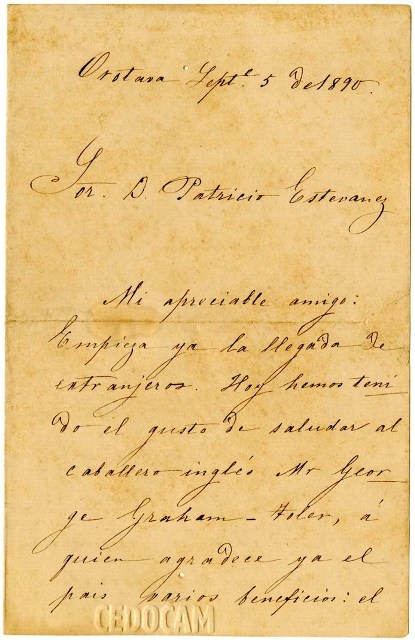 Orotava Septe. 5 de 1890.
Sor. D. Patricio Estevanez
Mi apreciable amigo:
Empieza ya la llegada de
extranjeros. Hoy hemos teni
do el gusto de saludar al
caballero inglés Mr Geor
ge Graham-Toler, á
quien agradece ya el
pais varios beneficios: el
CEDOCAM